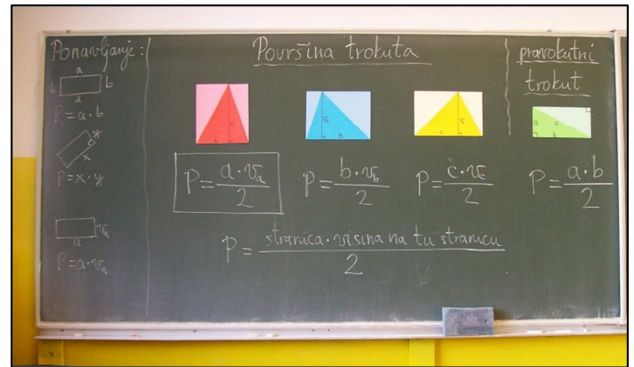 Ponavljanje:
a
b
b
a
P=a·b
y
x
P=x·y
a
P=a·vₐ
Površina trokuta
P=a·vₐ/2
P=b·v_b/2
P=c·v_c/2
P=stranica·visina na tu stranicu/2
pravokutni
trokut
a
c
b
P=a·b/2